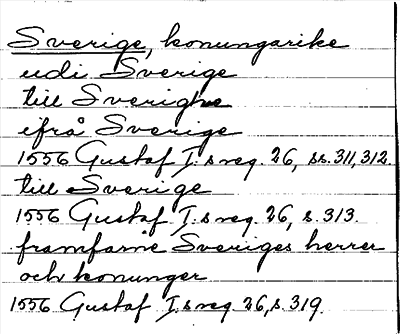 Sverige, konungarike
udi Sverige
till Sverighe
ifrå Sverige
1556 Gustaf I.s reg. 26, ss. 311, 312.
till Sverige
1556 Gustaf I.s reg. 26, s. 313.
framfarne Sveriges herrer
och konunger
1556 Gustaf I.s reg. 26, s. 319.